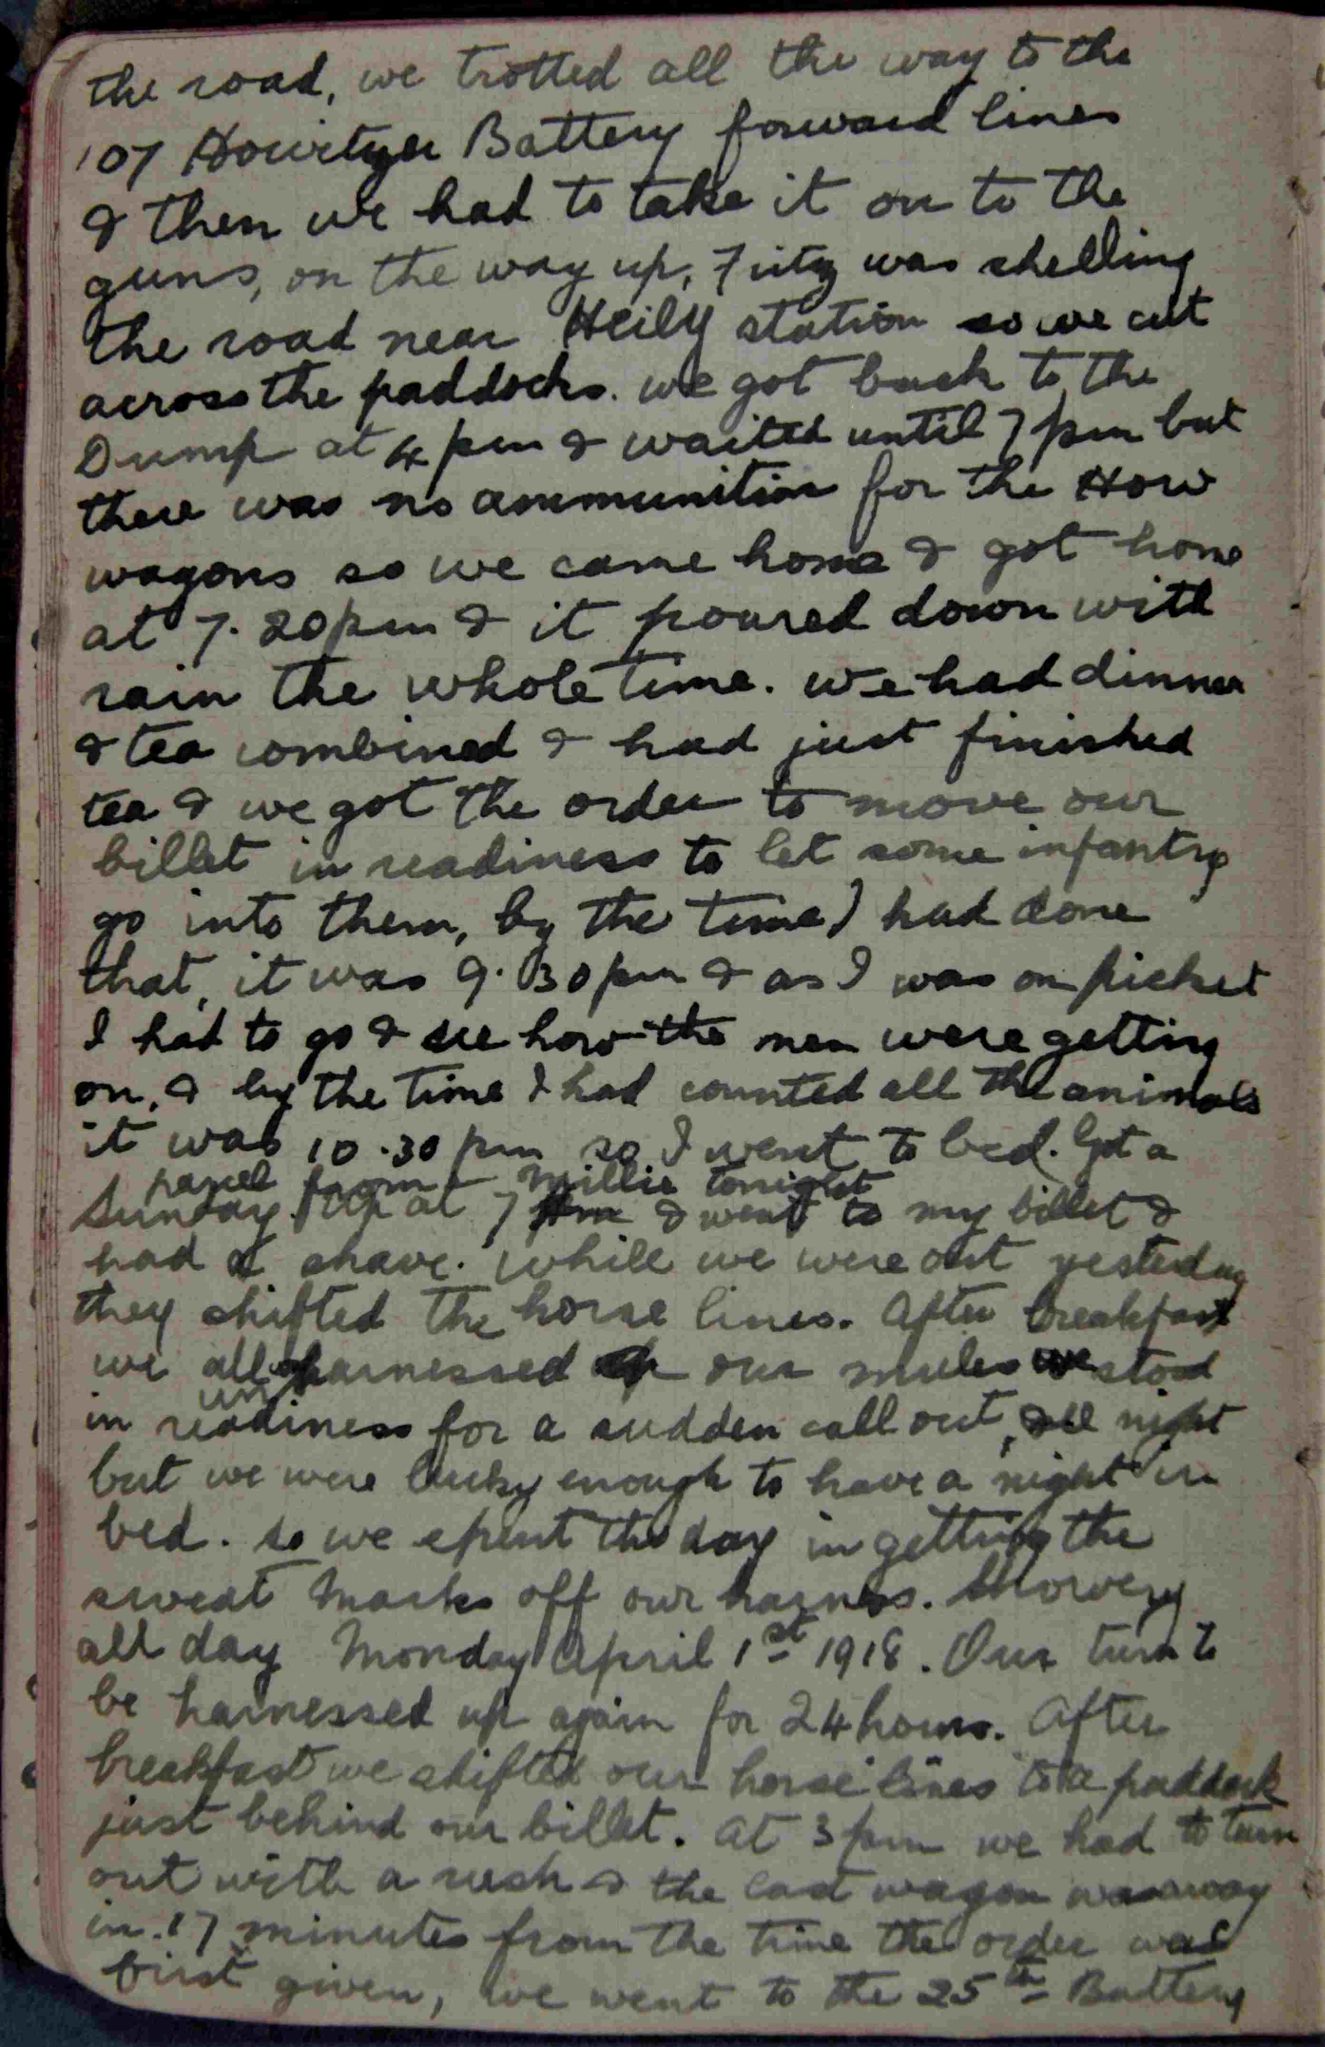 the road, we trotted all the way to the
107 Howitzer Battery forward lines
& then we had to take it on to the
guns, on the way up, Fritz was shelling
the road near Heily station so we cut
across the paddocks. we got back to the
Dump at 4 pm & waited until 7 pm but
there was no ammunition for the How
wagons so we came home & got home
at 7.20pm & it poured down with
rain the whole time. we had dinner
& tea combined & had just finished
tea & we got the order to move our
billet in readiness to let some infantry
go into them, by the time I had done
that, it was 9.30pm & as I was on picket
I had to go & see how the men were getting
on, & by the time I had counted all the animals
it was 10.30 pm so I went to bed. Got a
parcel from Millie tonight
Sunday. Up at 7 & went to my billet &
had a shave. While we were out yesterday
they shifted the horse lines. After breakfast
we all unharnessed our mules we stood
in readiness for a sudden call out, all night
but we were lucky enough to have a night in
bed. so we spent the day in getting the
sweat marks off our harness. Showery
all day Monday April 1st 1918. Our turn to
be harnessed up again for 24 hours. After
breakfast we shifted our horse lines to a paddock
just behind our billet. At 3 pm we had to turn
out with a rush & the last wagon was away
in 17 minutes from the time the order was
first given, we went to the 25th Battery